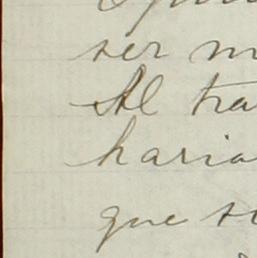 ser m
Al tra
haria
que s